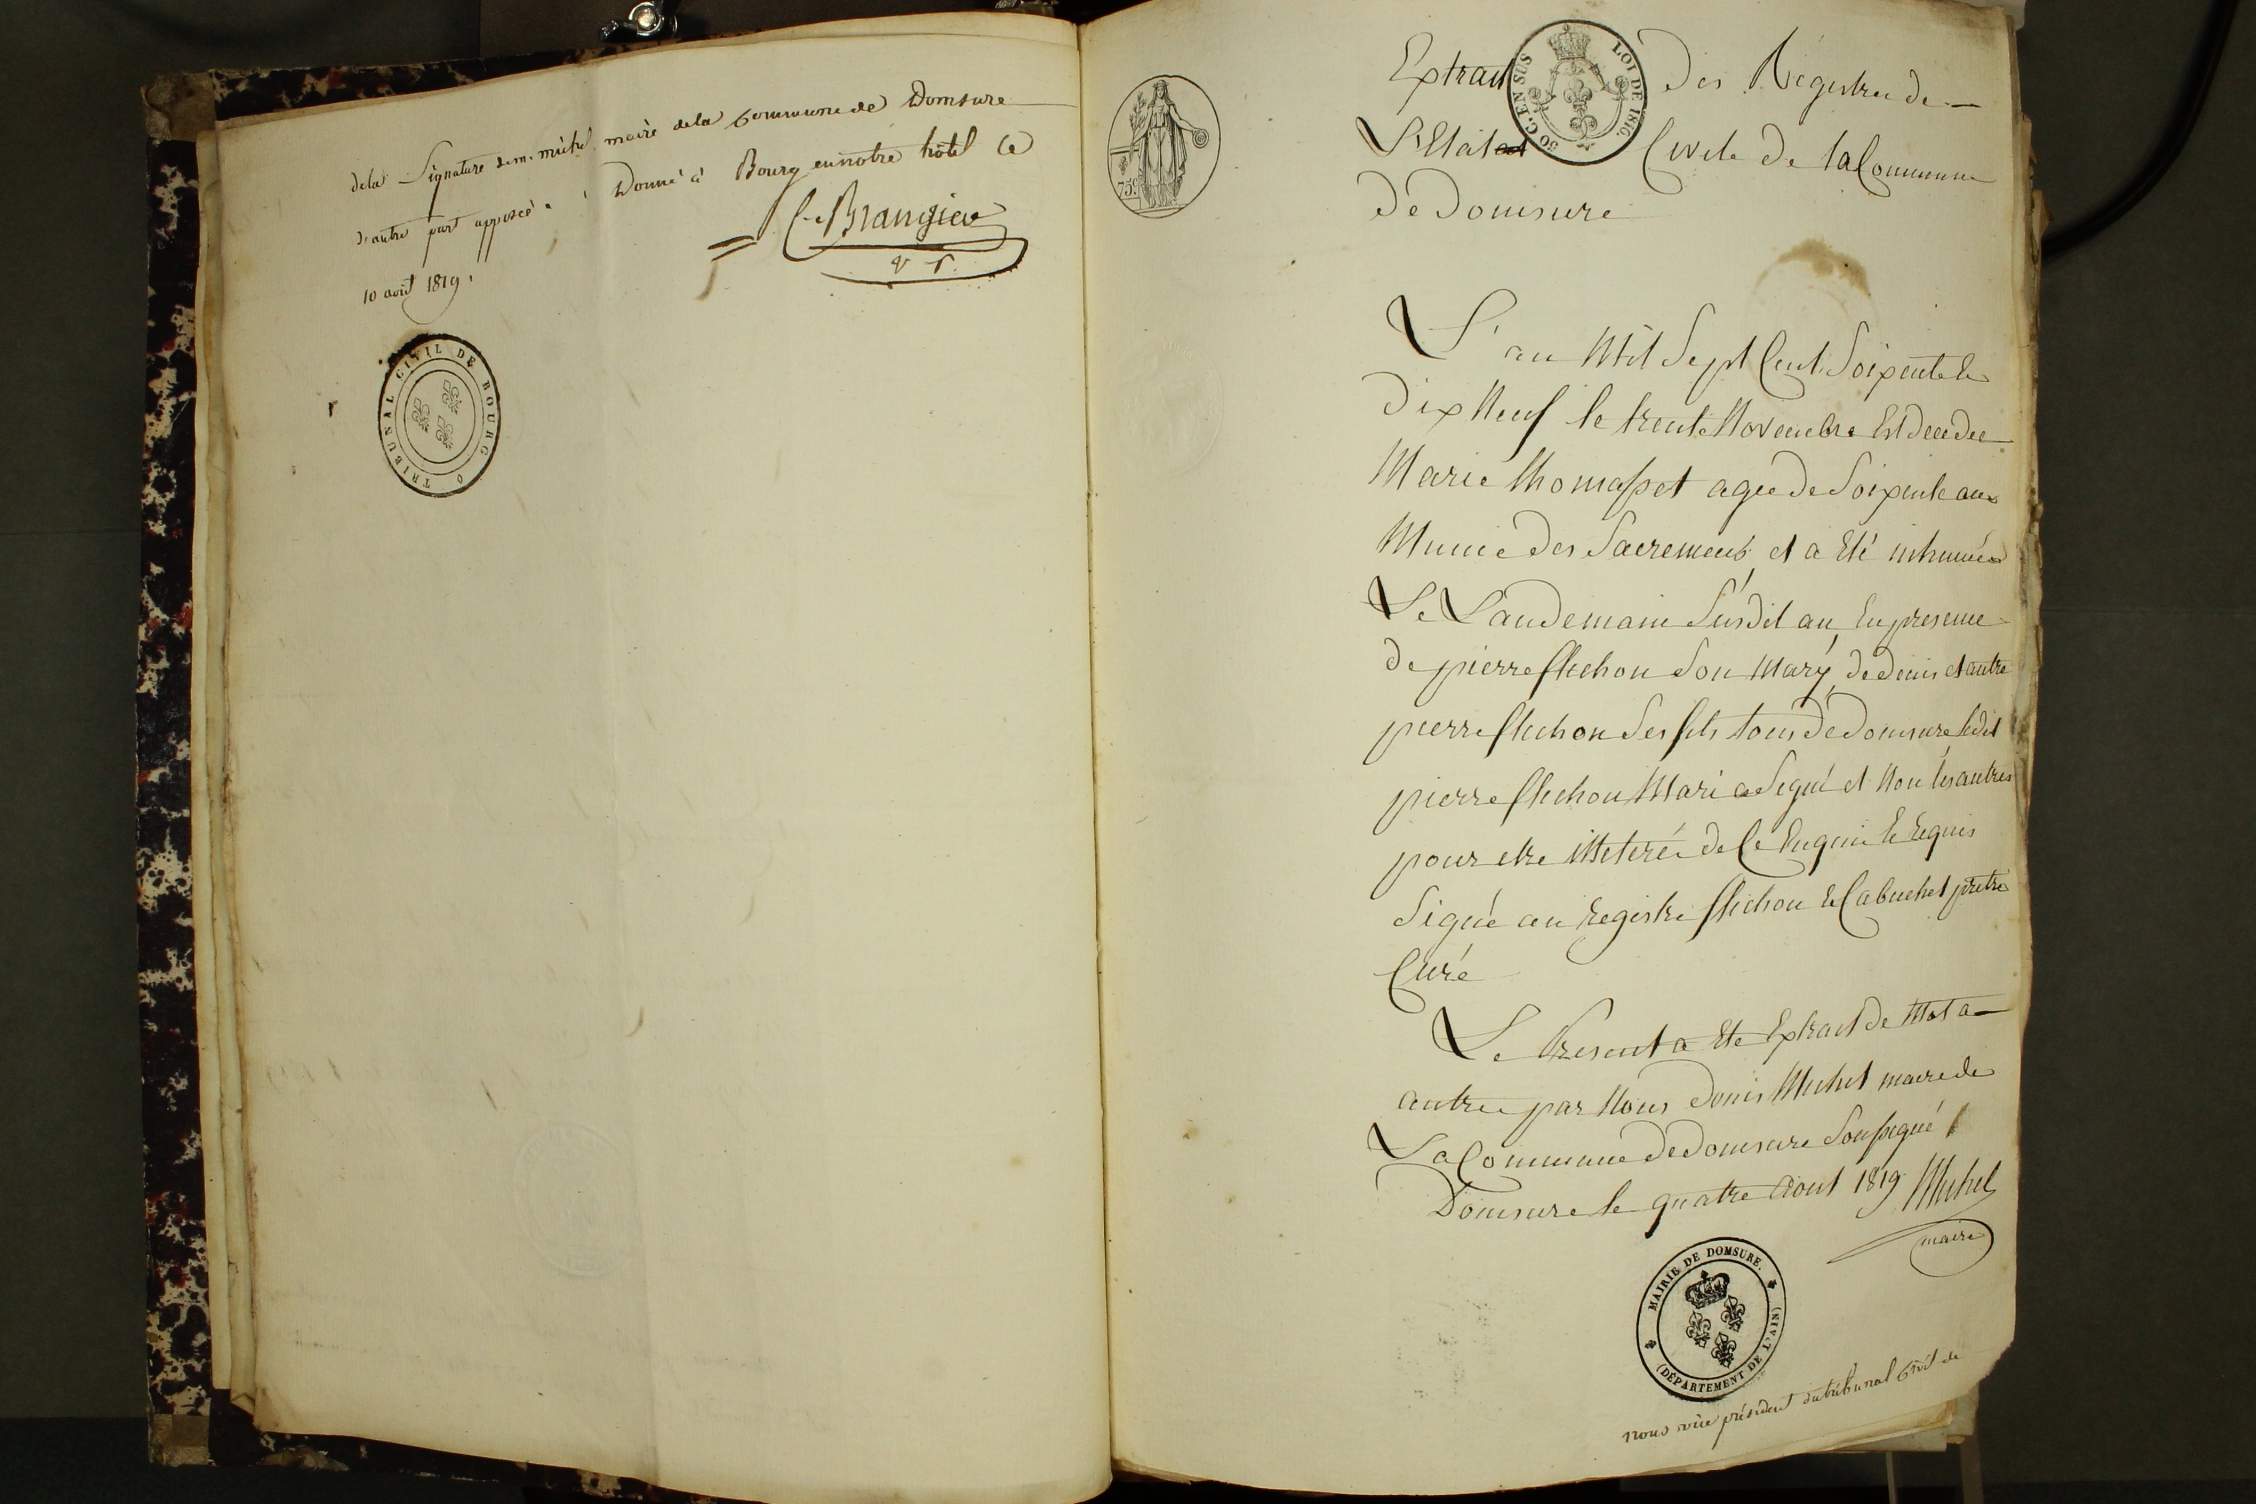 de la Signature de m. michel, maire de la Commune de Domsure
d'autre part apposée. Donné à Bourg en notre hôtel Ce
10 aoùt 1819.
V. P.
TRIBUNAL CIVIL DE BOURG
75c.
Extrait des Régistres de
L'Etat Civile de la Commune
de Domsure
50 C. EN SUS LOI DE 1816.
L'an Mil Sept Cent Soixente &
dix Neuf le trente Novembre Est décédée
Marie Thomasset agée de Soixente ans
Munie des Sacrements, et a Eté inhumée
Le Landemain Susdit an, En presence
de pierre Michon Son Mary, de denis et autre
pierre Michon Ses fils tous de Domsure ledit
pierre Michon Mari a Signé et Non les autres
pour etre illeterés de Ce Enquis & Requis
Signé au Registre Michon & Cabuchet prêtre
Curé
Le Present a Eté Extrait de Mot a
autre par Nous Denis Michel maire de
La Commune de Domsure Soussigné
Domsure le quatre Aout 1819 Michel
maire
MAIRIE DE DOMSURE.
(DÉPARTEMENT DE L'AIN)
Nous vice président du tribunal Civil de